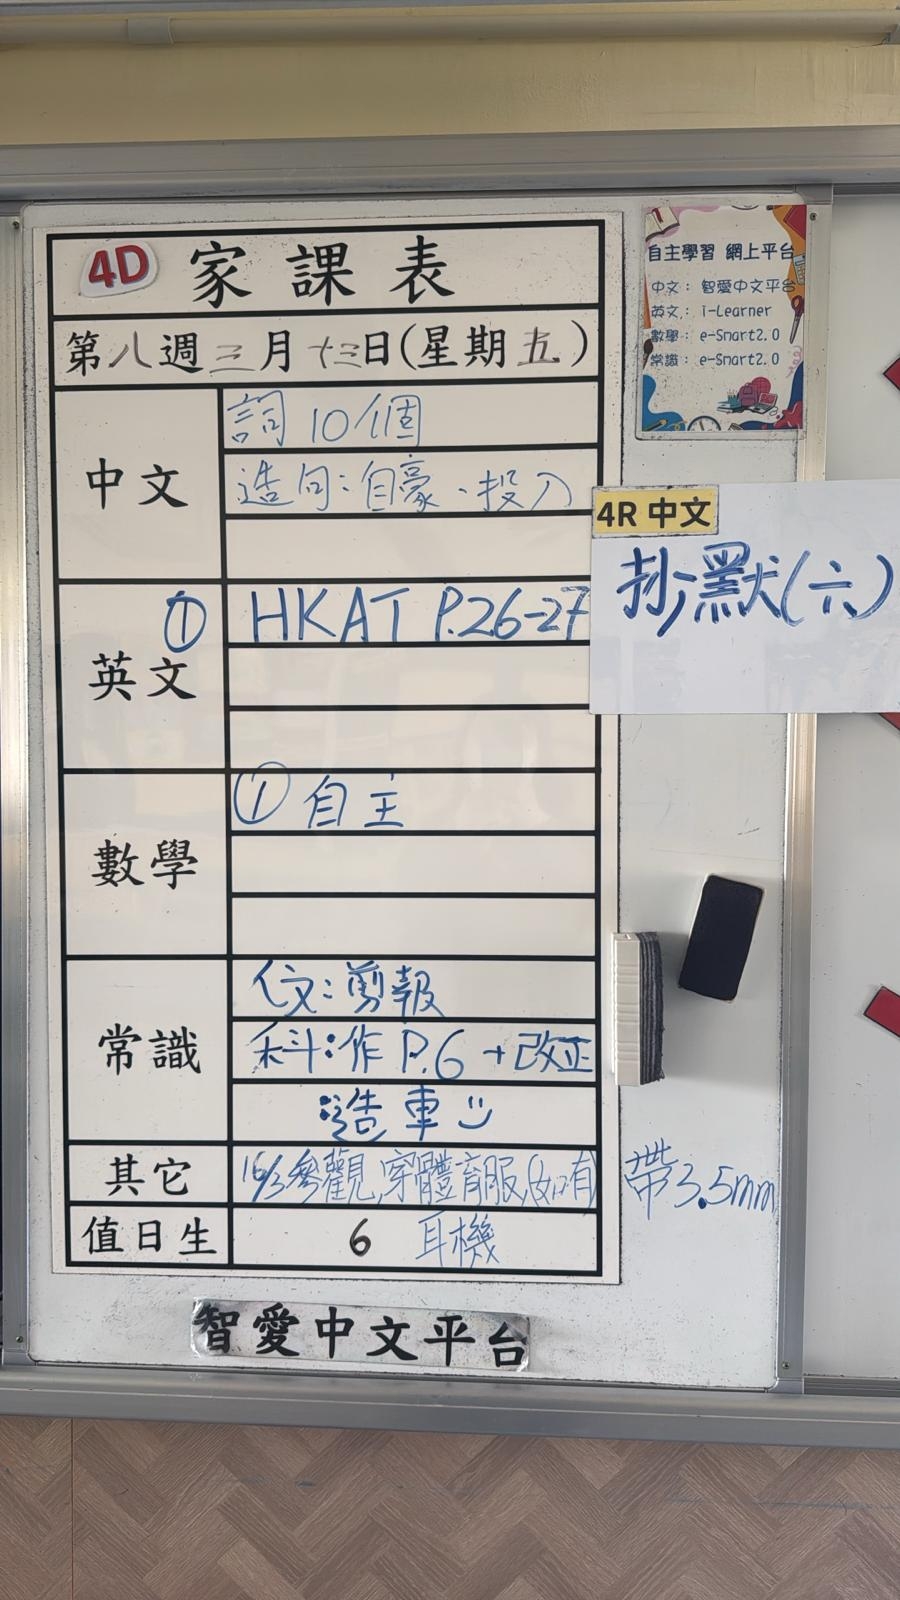 4D 家課表
第八週三月十三日(星期五)
中文
詞10個
造句:自豪、投入
英文
① HKAT P.26-27
數學
① 自主
常識
仅:剪報
科:作 P.6 + 改正
造車
其它
16/3參觀,穿體育服(如有) 帶3.5mm
值日生
6 耳機
智愛中文平台
自主學習 網上平台
中文: 智愛中文平台
英文: i-Learner
數學: e-Smart2.0
常識: e-Smart2.0
4R 中文
抄默(六)